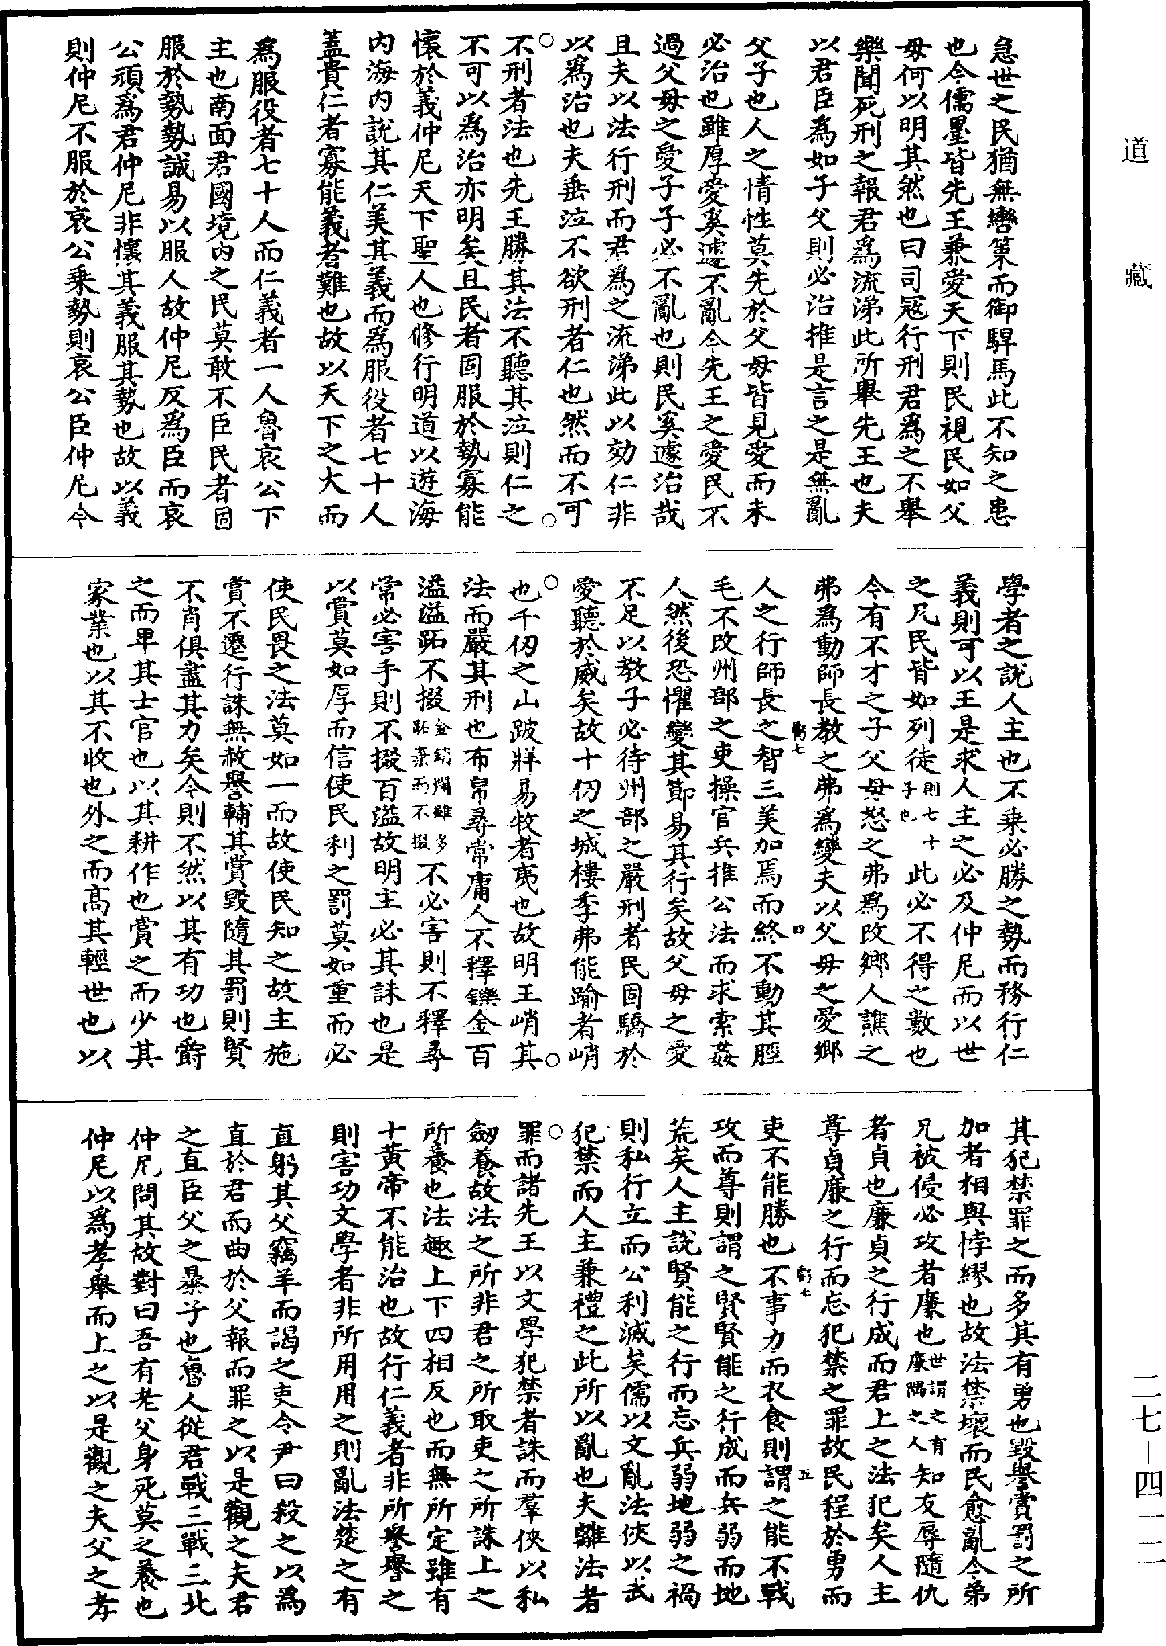 道藏
急世之民猶無轡策而御駻馬此不知之患
也今儒墨皆先王兼愛天下則民視民如父
母何以明其然也曰司寇行刑君爲之不舉
樂聞死刑之報君爲流涕此所舉先王也夫
以君臣爲如子父則必治推是言之是無亂
父子也人之情性莫先於父母皆見愛而未
必治也雖厚愛奚遽不亂今先王之愛民不
過父母之愛子子必不亂也則民奚遽治哉
且夫以法行刑而君爲之流涕此以効仁非
以爲治也夫垂泣不欲刑者仁也然而不可
不刑者法也先王勝其法不聽其泣則仁之
不可以爲治亦明矣且民者固服於勢寡能
懷於義仲尼天下聖人也修行明道以遊海
內海內說其仁美其義而爲服役者七十人
蓋貴仁者寡能義者難也故以天下之大而
爲服役者七十人而仁義者一人魯哀公下
主也南面君國境內之民莫敢不臣民者固
服於勢勢誠易以服人故仲尼反爲臣而哀
公頑爲君仲尼非懷其義服其勢也故以義
則仲尼不服於哀公乘勢則哀公臣仲尼今
學者之說人主也不乗必勝之勢而務行仁
義則可以王是求人主之必及仲尼而以世
之凡民皆如列徒則七十子也此必不得之數也
今有不才之子父母怒之弗爲改鄉人譙之
弗爲動師長教之弗爲變夫以父母之愛鄉
人之行師長之智三美加焉而終不動其脛
毛不改州部之吏操官兵推公法而求索姦
人然後恐懼變其節易其行矣故父母之愛
不足以教子必待州部之嚴刑者民固驕於
愛聽於威矣故十仞之城樓季弗能踰者峭
也千仞之山跛牂易牧者夷也故明王峭其
法而嚴其刑也布帛尋常庸人不釋鑠金百
溢盜跖不掇金銷爛雖多跖棄而不掇不必害則不釋尋
常必害手則不掇百溢故明主必其誅也是
以賞莫如厚而信使民利之罰莫如重而必
使民畏之法莫如一而故使民知之故主施
賞不遷行誅無赦譽輔其賞毀隨其罰則賢
不肖俱盡其力矣今則不然以其有功也爵
之而卑其士官也以其耕作也賞之而少其
家業也以其不收也外之而高其輕世也以
其犯禁罪之而多其有勇也毀譽賞罰之所
加者相與悖繆也故法禁壞而民愈亂今弟
兄被侵必攻者廉也世謂之有廉隅之人知友辱隨仇
者貞也廉貞之行成而君上之法犯矣人主
尊貞廉之行而忘犯禁之罪故民程於勇而
吏不能勝也不事力而衣食則謂之能不戰
攻而尊則謂之賢賢能之行成而兵弱而地
荒矣人主說賢能之行而忘兵弱地弱之禍
則私行立而公利滅矣儒以文亂法俠以武
犯禁而人主兼禮之此所以亂也夫離法者
罪而諸先王以文學犯禁者誅而羣俠以私
劒養故法之所非君之所取吏之所誅上之
所養也法趣上下四相反也而無所定雖有
十黃帝不能治也故行仁義者非所譽譽之
則害功文學者非所用用之則亂法楚之有
直躬其父竊羊而謁之吏令尹曰殺之以爲
直於君而曲於父報而罪之以是觀之夫君
之直臣父之暴子也魯人從君戰三戰三北
仲尼問其故對曰吾有老父身死莫之養也
仲尼以爲孝舉而上之以是觀之夫父之孝
二七—四一二